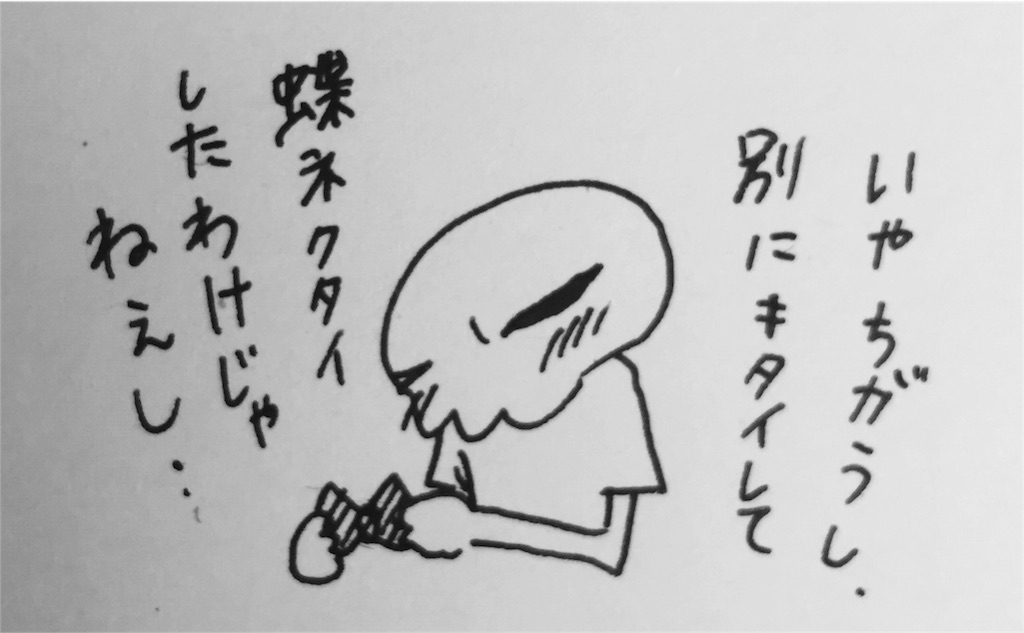 いやちがうし.
別にキタイして
蝶ネクタイ
したわけじゃ
ねえし..